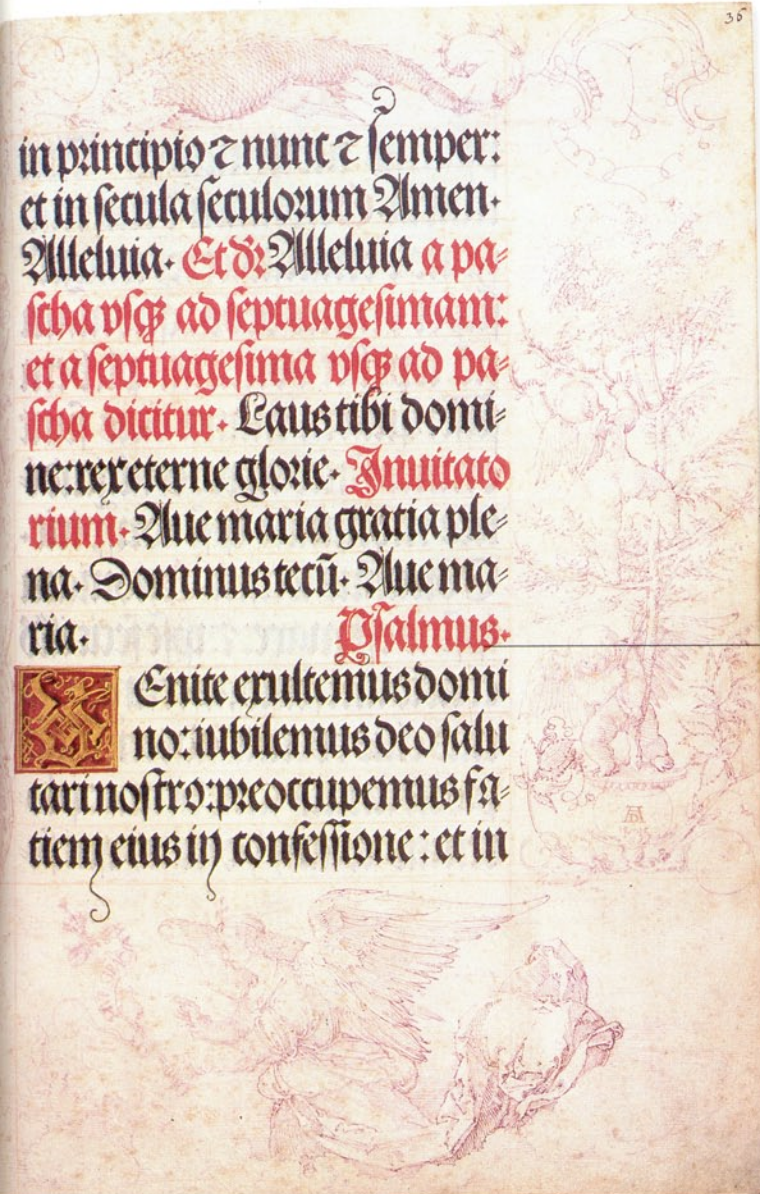 36
in principio ⁊ nunc ⁊ ſemper:
et in ſecula ſeculorum Amen.
Alleluia. Et dr̄ Alleluia a pa⸗
ſcha vſqꝫ ad ſeptuageſimam:
et a ſeptuageſima vſqꝫ ad pa⸗
ſcha dicitur. Laus tibi domi⸗
ne: rex eterne glorie. Inuitato
rium. Aue maria gratia ple⸗
na. Dominus tecū. Aue ma⸗
ria. Pſalmus.
VEnite exultemus domi
no: iubilemus deo ſalu
tari noſtro: preoccupemus fa⸗
ciem eius in confeſſione: et in
AD